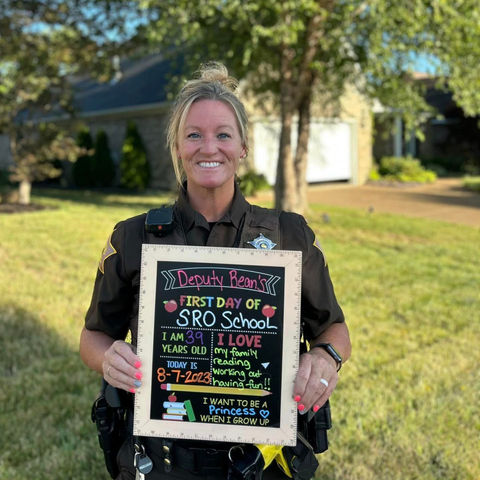 Deputy Bean's
FIRST DAY OF
SRO School
I AM 39
YEARS OLD
TODAY IS
8-7-2023
I LOVE
my family
reading
working out
having fun!!
I WANT TO BE A
Princess
WHEN I GROW UP